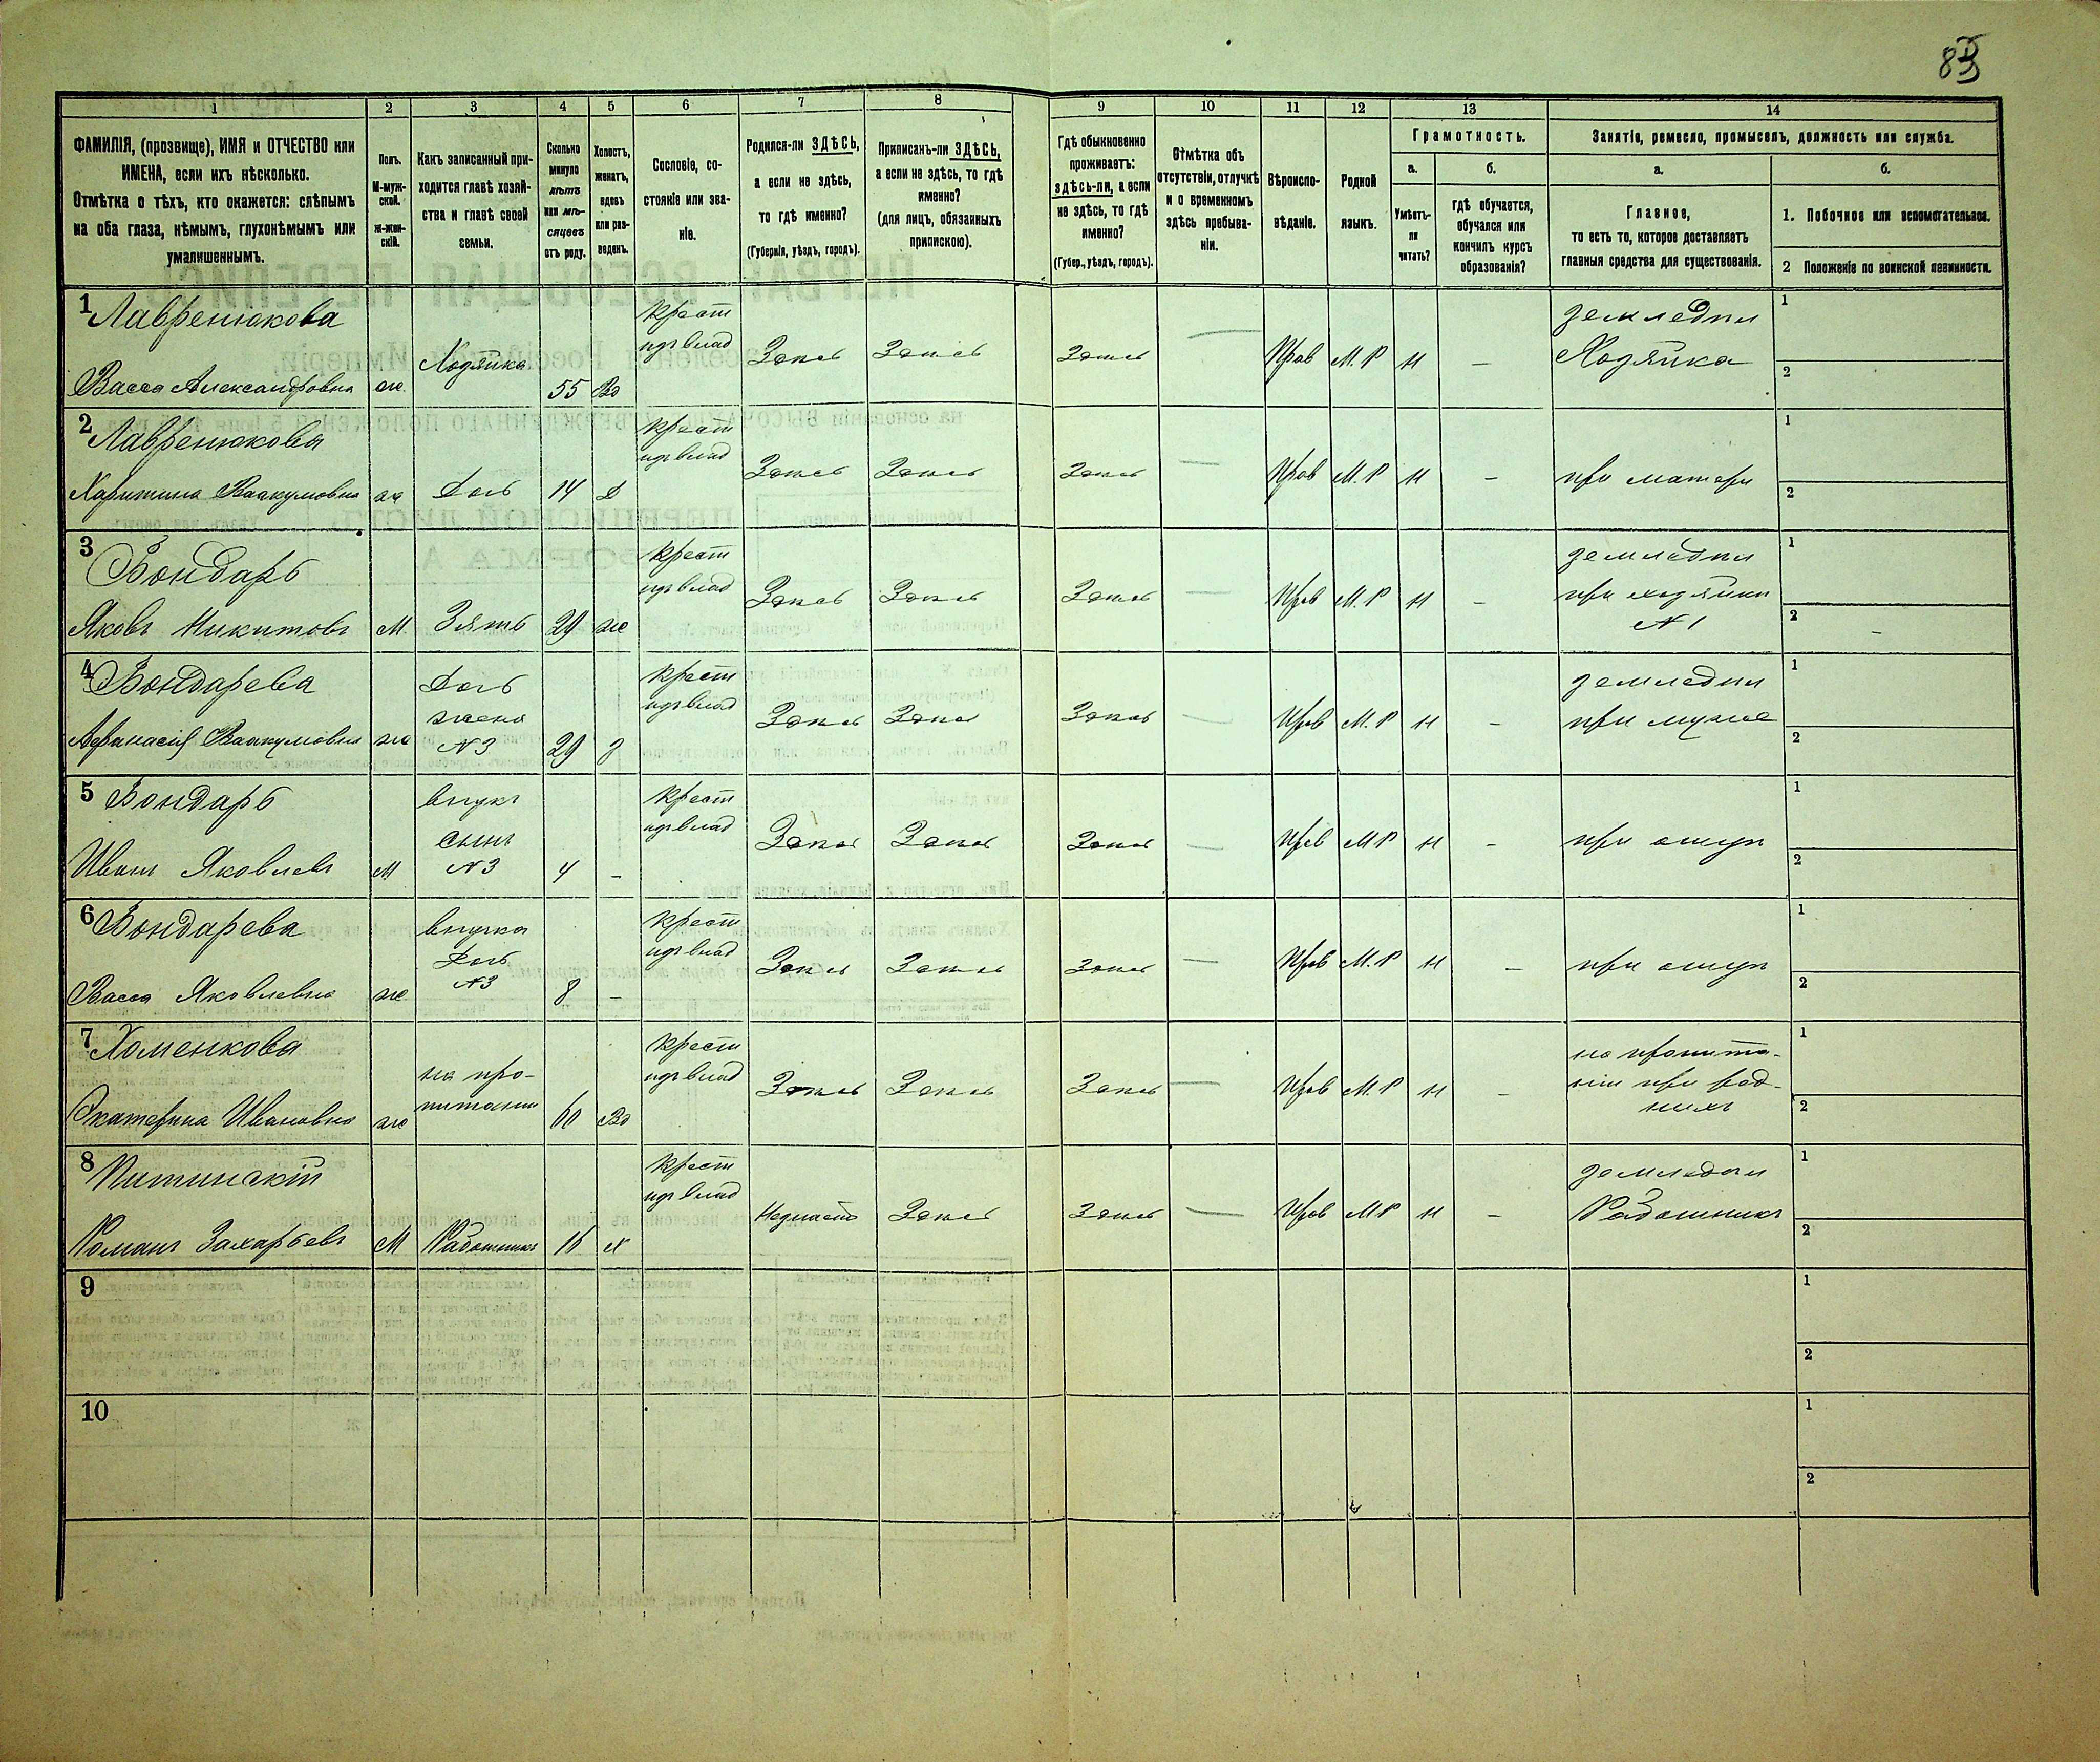 83
1 2 3 4 5 6 7 8 9 10 11 12 13 14
ФАМИЛІЯ, (прозвище), ИМЯ и ОТЧЕСТВО или
ИМЕНА, если ихъ нѣсколько.
Отмѣтка о тѣхъ, кто окажется: слѣпымъ
на оба глаза, нѣмымъ, глухонѣмымъ или
умалишеннымъ.
Полъ.
М-муж-
ской.
Ж-жен-
скій.
Какъ записанный при-
ходится главѣ хозяй-
ства и главѣ своей
семьи.
Сколько
минуло
лѣтъ
или мѣ-
сяцевъ
отъ роду.
Холостъ,
женатъ,
вдовъ
или раз-
веденъ.
Сословіе, со-
стояніе или зва-
ніе.
Родился-ли ЗДѢСЬ,
а если не здѣсь,
то гдѣ именно?
(Губернія, уѣздъ, городъ).
Приписанъ-ли ЗДѢСЬ,
а если не здѣсь, то гдѣ
именно?
(для лицъ, обязанныхъ
припискою).
Гдѣ обыкновенно
проживаетъ:
здѣсь-ли, а если
не здѣсь, то гдѣ
именно?
(Губер., уѣздъ, городъ).
Отмѣтка объ
отсутствіи, отлучкѣ
и о временномъ
здѣсь пребыва-
ніи.
Вѣроиспо-
вѣданіе.
Родной
языкъ.
Грамотность.
а.
Умѣетъ-
ли
читать?
б.
гдѣ обучается,
обучался или
кончилъ курсъ
образованія?
Занятіе, ремесло, промыселъ, должность или служба.
а.
Главное,
то есть то, которое доставляетъ
главныя средства для существованія.
б.
1. Побочное или вспомогательное.
2 Положеніе по воинской повинности.
1 Лавренюкова
Васса Александровна
ж.
Хозяйка
55
Вд
Крест
изъ влад
Здѣсь
Здѣсь
Здѣсь
—
Прав
М. Р
н
—
земледѣл
Хозяйка
1
2
2 Лавренюкова
Харитина Ваакумовна
ж
Дочь
14
Д
Крест
изъ влад
Здѣсь
Здѣсь
Здѣсь
—
Прав
М. Р
н
—
при матери
1
2
3 Бондарь
Яковъ Никитовъ
М
Зять
29
ж
Крест
изъ влад
Здѣсь
Здѣсь
Здѣсь
—
Прав
М. Р
н
—
земледѣл
при хозяйки
№ 1
1
2
—
4 Бондарева
Афанасія Ваакумовна
ж
Дочь
жена
№ 3
29
З
Крест
изъ влад
Здѣсь
Здѣсь
Здѣсь
—
Прав
М. Р
н
—
земледѣл
при мужѣ
1
2
5 Бондарь
Иванъ Яковлевъ
М
внукъ
сынъ
№ 3
4
—
Крест
изъ влад
Здѣсь
Здѣсь
Здѣсь
—
Прав
М Р
н
—
при отцѣ
1
2
6 Бондарева
Васса Яковлевна
ж.
внучка
Дочь
№ 3
8
—
Крест
изъ влад
Здѣсь
Здѣсь
Здѣсь
—
Прав
М. Р
н
—
при отцѣ
1
2
7 Хоменкова
Екатерина Ивановна
ж
на про-
питаніи
60
Вд
Крест
изъ влад
Здѣсь
Здѣсь
Здѣсь
—
Прав
М. Р
н
—
на пропита-
ніи при род-
ныхъ
1
2
8 Питинскій
Романъ Захарьевъ
М
Работникъ
16
х
Крест
изъ влад
Здѣсь
Здѣсь
—
Прав
М Р
н
—
земледѣл
Работникъ
1
2
9
1
2
10
1
2